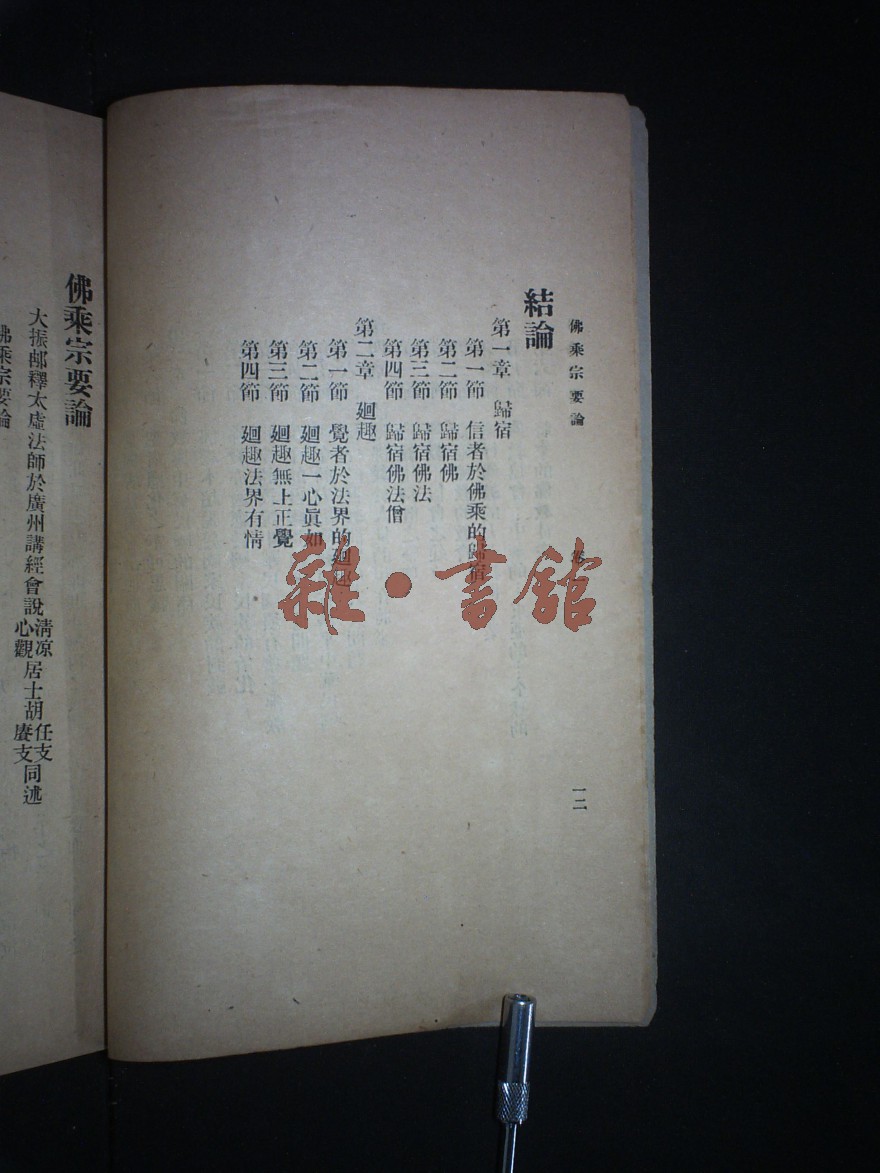 佛乘宗要論
一二
結論
第一章 歸宿
第一節 信者於佛乘的歸宿
第二節 歸宿佛
第三節 歸宿佛法
第四節 歸宿佛法僧
第二章 廻趣
第一節 覺者於法界的廻趣
第二節 廻趣一心眞如
第三節 廻趣無上正覺
第四節 廻趣法界有情
雜·書館
佛乘宗要論
大振邮釋太虛法師於廣州講經會說淸凉心觀居士胡任支賡支同述
佛乘宗要論